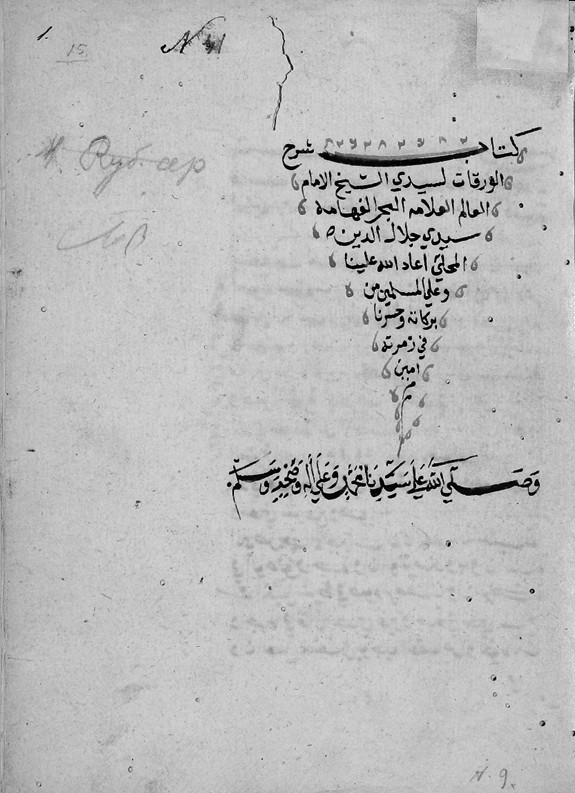 1.
15
N 41
كتاب شرح
الورقات لسيدي الشيخ الامام
العالم العلامه البحر الفهامه
سيدي جلال الدين
المحلي أعاد الله علينا
وعلي المسلمين من
بركاته وحشرنا
في زمرته
امين
م
وصلي الله علي سيدنا محمد وعلي اله وصحبه وسلم
N. 9.